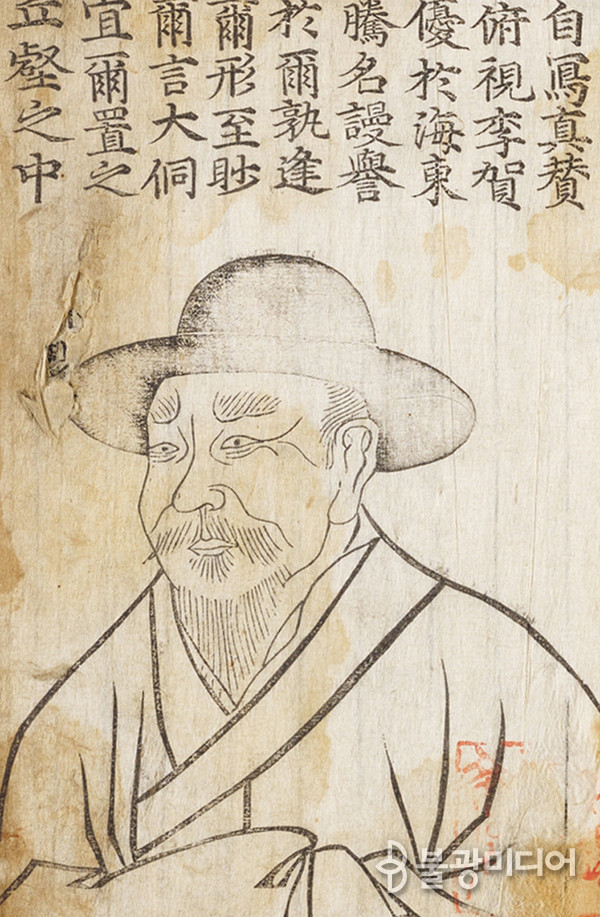 自寫真賛
俯視李賀
優於海東
騰名謾譽
於爾孰逢
爾形至眇
爾言大侗
宜爾置之
丘壑之中
불광미디어